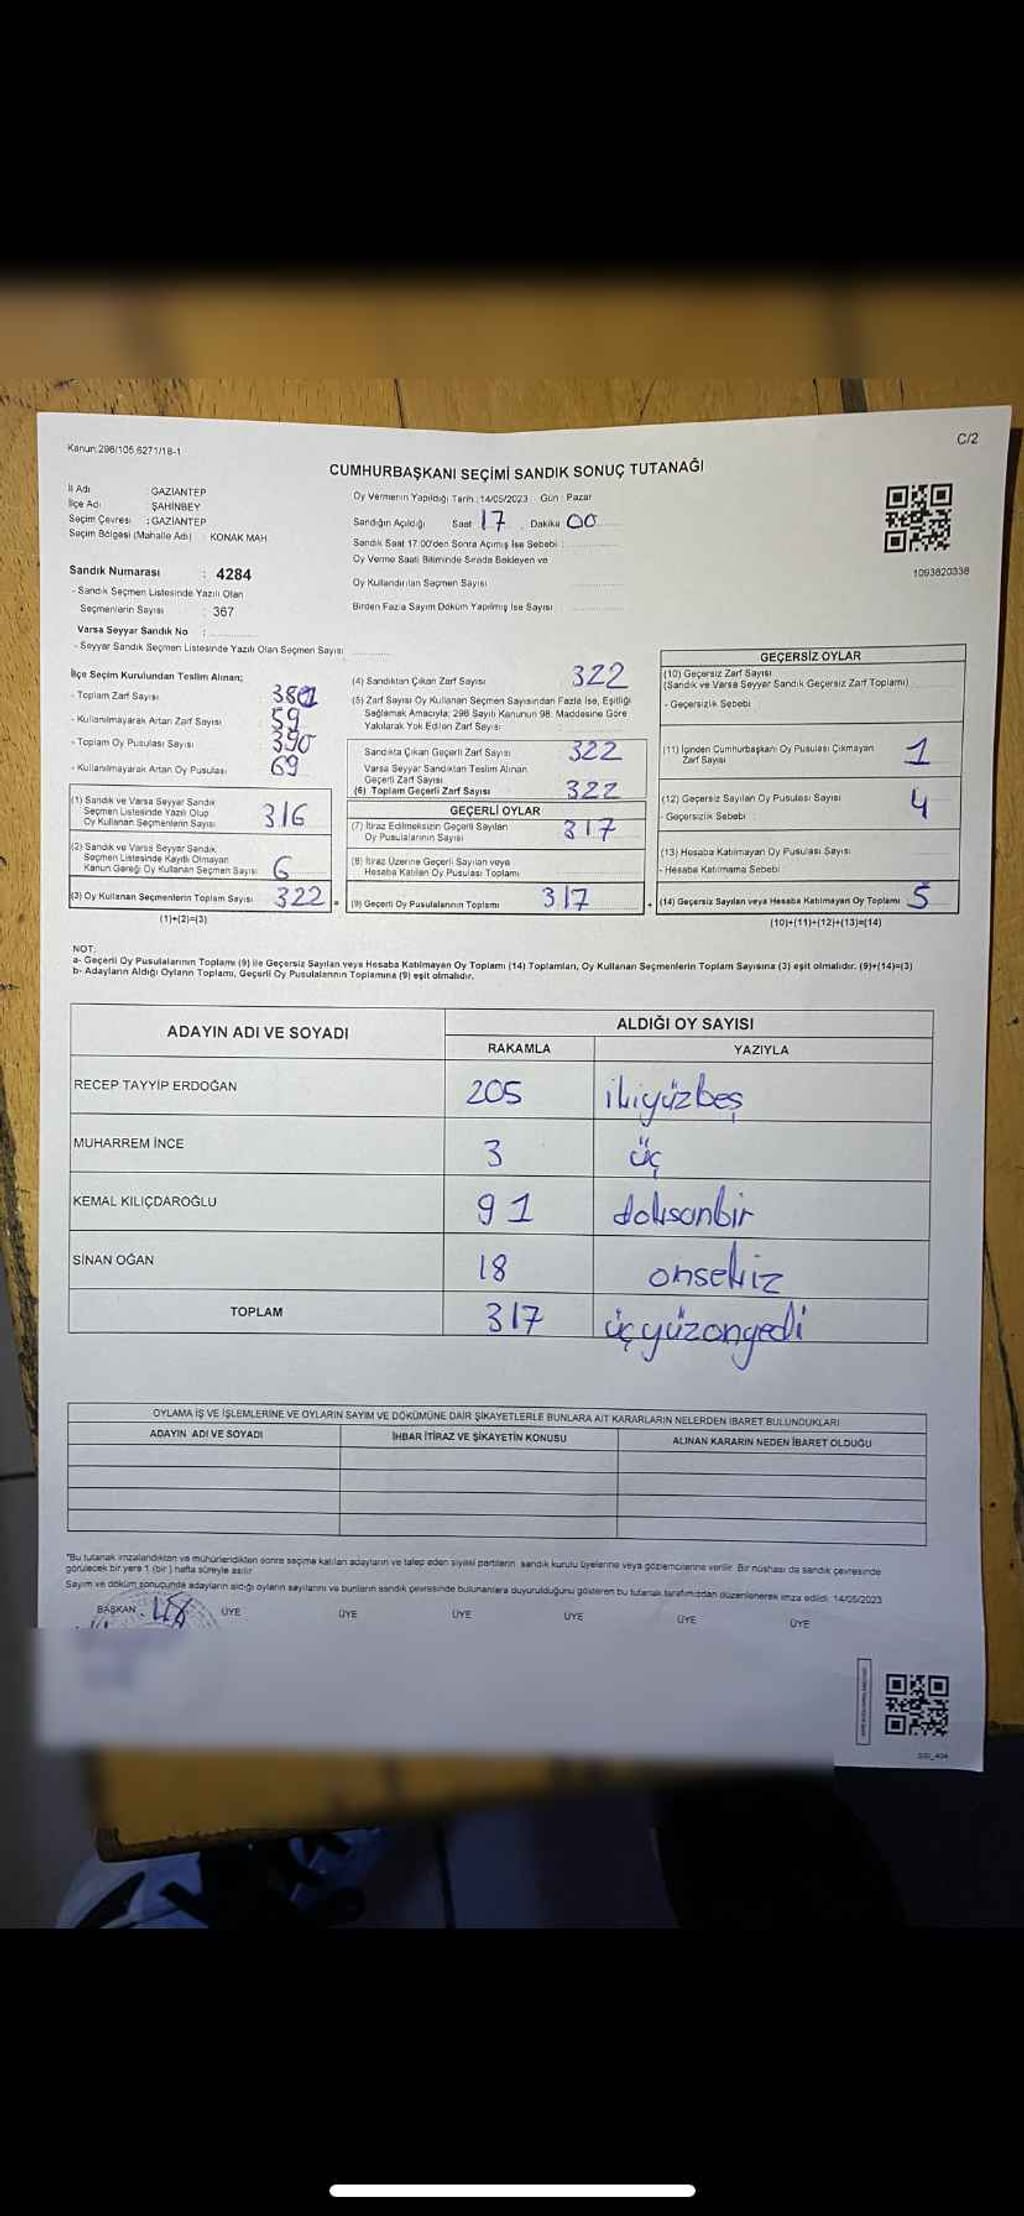 Kanun:298/105,6271/18-1
C/2
CUMHURBAŞKANI SEÇİMİ SANDIK SONUÇ TUTANAĞI
İl Adı GAZİANTEP
İlçe Adı ŞAHİNBEY
Seçim Çevresi : GAZİANTEP
Seçim Bölgesi (Mahalle Adı) KONAK MAH
Sandık Numarası : 4284
- Sandık Seçmen Listesinde Yazılı Olan
Seçmenlerin Sayısı : 367
Varsa Seyyar Sandık No :
- Seyyar Sandık Seçmen Listesinde Yazılı Olan Seçmen Sayısı
Oy Vermenin Yapıldığı Tarih : 14/05/2023 Gün : Pazar
Sandığın Açıldığı Saat 17 Dakika 00
Sandık Saat 17:00'den Sonra Açımış İse Sebebi :
Oy Verme Saati Bitiminde Sırada Bekleyen ve
Oy Kullandırılan Seçmen Sayısı
Birden Fazla Sayım Döküm Yapılmış İse Sayısı
1093820338
İlçe Seçim Kurulundan Teslim Alınan;
- Toplam Zarf Sayısı
- Kullanılmayarak Artan Zarf Sayısı 59
- Toplam Oy Pusulası Sayısı 390
- Kullanılmayarak Artan Oy Pusulası 69
(1) Sandık ve Varsa Seyyar Sandık
Seçmen Listesinde Yazılı Olup
Oy Kullanan Seçmenlerin Sayısı 316
(2) Sandık ve Varsa Seyyar Sandık
Seçmen Listesinde Kayıtlı Olmayan
Kanun Gereği Oy Kullanan Seçmen Sayısı 6
(3) Oy Kullanan Seçmenlerin Toplam Sayısı 322
(1)+(2)=(3)
(4) Sandıktan Çıkan Zarf Sayısı 322
(5) Zarf Sayısı Oy Kullanan Seçmen Sayısından Fazla İse, Eşitliği
Sağlamak Amacıyla; 298 Sayılı Kanunun 98. Maddesine Göre
Yakılarak Yok Edilen Zarf Sayısı
Sandıkta Çıkan Geçerli Zarf Sayısı 322
Varsa Seyyar Sandıktan Teslim Alınan
Geçerli Zarf Sayısı
(6) Toplam Geçerli Zarf Sayısı 322
GEÇERLİ OYLAR
(7) İtiraz Edilmeksizin Geçerli Sayılan
Oy Pusulalarının Sayısı 317
(8) İtiraz Üzerine Geçerli Sayılan veya
Hesaba Katılan Oy Pusulası Toplamı
(9) Geçerli Oy Pusulalarının Toplamı 317
GEÇERSİZ OYLAR
(10) Geçersiz Zarf Sayısı
(Sandık ve Varsa Seyyar Sandık Geçersiz Zarf Toplamı)
- Geçersizlik Sebebi
(11) İçinden Cumhurbaşkanı Oy Pusulası Çıkmayan
Zarf Sayısı 1
(12) Geçersiz Sayılan Oy Pusulası Sayısı 4
- Geçersizlik Sebebi
(13) Hesaba Katılmayan Oy Pusulası Sayısı
- Hesaba Katılmama Sebebi
(14) Geçersiz Sayılan veya Hesaba Katılmayan Oy Toplamı 5
(10)+(11)+(12)+(13)=(14)
NOT:
a- Geçerli Oy Pusulalarının Toplamı (9) ile Geçersiz Sayılan veya Hesaba Katılmayan Oy Toplamı (14) Toplamları, Oy Kullanan Seçmenlerin Toplam Sayısına (3) eşit olmalıdır. (9)+(14)=(3)
b- Adayların Aldığı Oyların Toplamı, Geçerli Oy Pusulalarının Toplamına (9) eşit olmalıdır.
ADAYIN ADI VE SOYADI
ALDIĞI OY SAYISI
RAKAMLA YAZIYLA
RECEP TAYYİP ERDOĞAN 205 ikiyüzbeş
MUHARREM İNCE 3 üç
KEMAL KILIÇDAROĞLU 91 doksanbir
SİNAN OĞAN 18 onsekiz
TOPLAM 317 üçyüzonyedi
OYLAMA İŞ VE İŞLEMLERİNE VE OYLARIN SAYIM VE DÖKÜMÜNE DAİR ŞİKAYETLERLE BUNLARA AİT KARARLARIN NELERDEN İBARET BULUNDUKLARI
ADAYIN ADI VE SOYADI İHBAR İTİRAZ VE ŞİKAYETİN KONUSU ALINAN KARARIN NEDEN İBARET OLDUĞU
"Bu tutanak imzalandıktan ve mühürlendikten sonra seçime katılan adayların ve talep eden siyasi partilerin sandık kurulu üyelerine veya gözlemcilerine verilir. Bir nüshası da sandık çevresinde
görülecek bir yere 1 (bir) hafta süreyle asılır
Sayım ve döküm sonucunda adayların aldığı oyların sayılarını ve bunların sandık çevresinde bulunanlara duyurulduğunu gösteren bu tutanak tarafımızdan düzenlenerek imza edildi. 14/05/2023
BAŞKAN ÜYE ÜYE ÜYE ÜYE ÜYE ÜYE